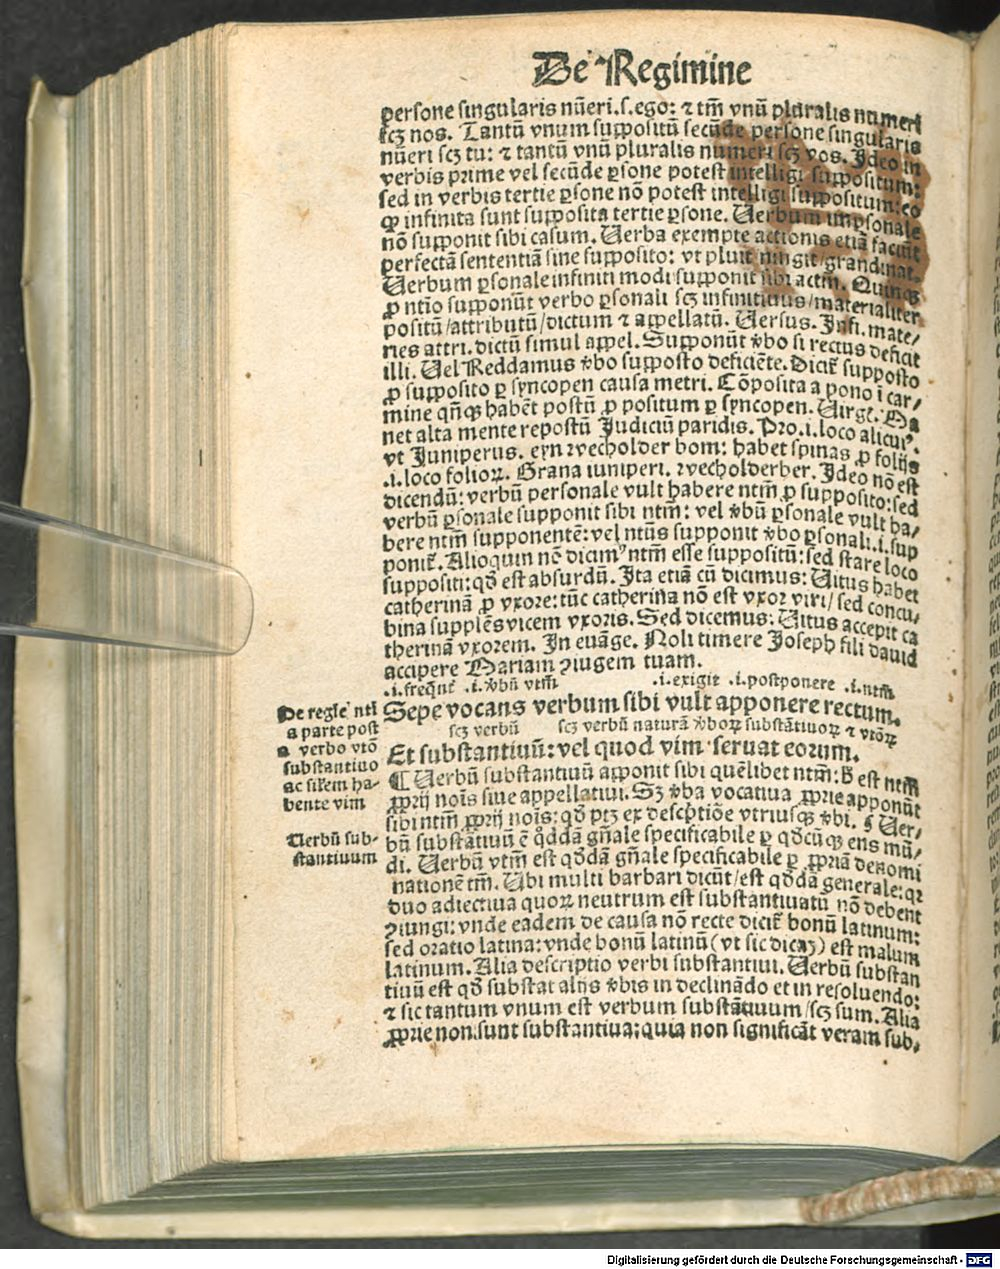 De Regimine
persone singularis nūeri.s.ego: ⁊ tm̄ vnū pluralis numeri
scꝫ nos. Tantū vnum suppositū secūde persone singularis
nūeri scꝫ tu: ⁊ tantū vnū pluralis numeri scꝫ vos. Ideo in
verbis prime vel secūde ꝑsone potest intelligi suppositum:
sed in verbis tertie ꝑsone nō potest intelligi suppositum: eo
ꝙ infinita sunt supposita tertie ꝑsone. Uerbum imꝑsonale
nō supponit sibi casum. Uerba exempte actionis etiā faciūt
perfectā sententiā sine supposito: vt pluit/ningit/grandinat.
Uerbum ꝑsonale infiniti modi supponit sibi actm̄. Quinqꝫ
ꝓ ntīo supponūt verbo ꝑsonali scꝫ infinitiuus/materialiter
positū/attributū/dictum ⁊ appellatū. Uersus. Infi. mate/
ries attri. dictū simul appel. Supponūt v̄bo si rectus deficit
illi. Uel Reddamus v̄bo supposto deficiēte. Dicit̄ supposto
ꝓ supposito ꝑ syncopen causa metri. Cōposita a pono ī car/
mine qn̄qꝫ habēt postū ꝓ positum ꝑ syncopen. Uirge. Ma
net alta mente repostū Judiciū paridis. Pro.i. loco alicuiꝰ.
vt Juniperus. eyn wecholder bom: habet spinas ꝓ folijs
.i. loco folioꝝ. Grana iuniperi. wecholderber. Ideo nō est
dicendū: verbū personale vult habere ntm̄ ꝓ supposito: sed
verbū ꝑsonale supponit sibi ntm̄: vel v̄bū ꝑsonale vult ha/
bere ntm̄ supponentē: vel ntūs supponit v̄bo ꝑsonali.i. sup
ponit̄. Alioquin nō dicimꝰ ntm̄ esse suppositū: sed stare loco
suppositi: qd̄ est absurdū. Ita etiā cū dicimus: Uitus habet
catherinā ꝓ vxore: tūc catherina nō est vxor viri/ sed concu/
bina supplēs vicem vxoris. Sed dicemus: Uitus accepit ca
therinā vxorem. In euāge. Noli timere Joseph fili dauid
accipere Mariam ꝯiugem tuam.
.i. freq̄nt̄ .i. v̄bū vtm̄ .i. exigit .i. postponere .i. ntm̄
Sepe vocans verbum sibi vult apponere rectum.
scꝫ verbū scꝫ verbū naturā v̄boꝝ substātiuoꝝ ⁊ vtōꝝ
Et substantiuū: vel quod vim seruat eorum.
De regle ntī
a parte post
a verbo vtō
substantiuo
ac silem ha-
bente vim
Uerbū sub-
stantiuum
¶ Uerbū substantiuū apponit sibi quēlibet ntm̄: hͦ est ntm̄
ꝓprij nois siue appellatiui. Sꝫ v̄ba vocatiua ꝓprie apponūt
sibi ntm̄ ꝓprij nois: qd̄ ptꝫ ex descp̄tiōe vtriusqꝫ v̄bi. ¶ Uer/
bū substātiuū ē qd̄dā gn̄ale specificabile ꝑ qd̄cūqꝫ ens mū/
di. Uerbū vtm̄ est qd̄dā gn̄ale specificabile ꝑ ꝓpriā denomi
nationē tm̄. Ubi multi barbari dicūt/est qd̄dā generale: qꝛ
duo adiectiua quoꝝ neutrum est substantiuatū nō debent
ꝯiungi: vnde eadem de causa nō recte dicit̄ bonū latinum:
sed oratio latina: vnde bonū latinū (vt sic dicaꝫ) est malum
latinum. Alia descriptio verbi substantiui. Uerbū substan
tiuū est qd̄ substat alijs v̄bis in declinādo et in resoluendo:
⁊ sic tantum vnum est verbum substātiuum/scꝫ sum. Alia
ꝓprie non sunt substantiua: quia non significāt veram sub/
Digitalisierung gefördert durch die Deutsche Forschungsgemeinschaft - DFG